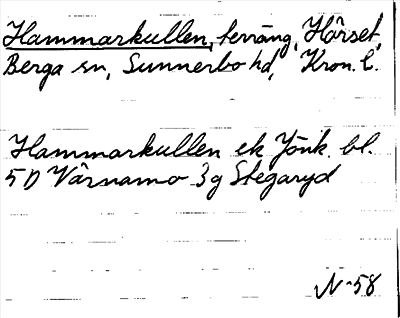 Hammarkullen, terräng, Hårset,
Berga sn, Sunnerbo hd, Kron. l.
Hammarkullen ek Jönk. bl.
5D Värnamo 3g Stegaryd
N-58